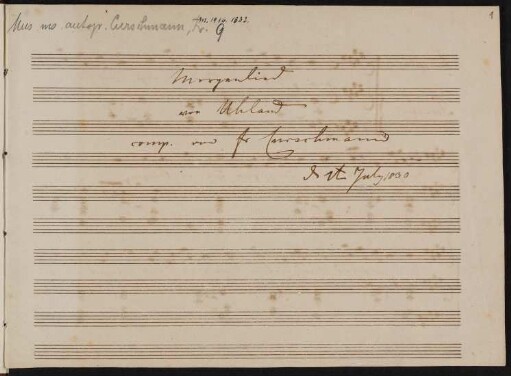 Mus ms autogr. Curschmann, Fr. 9
M. 1914. 1632.
1
Morgenlied
von Uhland
comp. von Fr Curschmann
July 1830